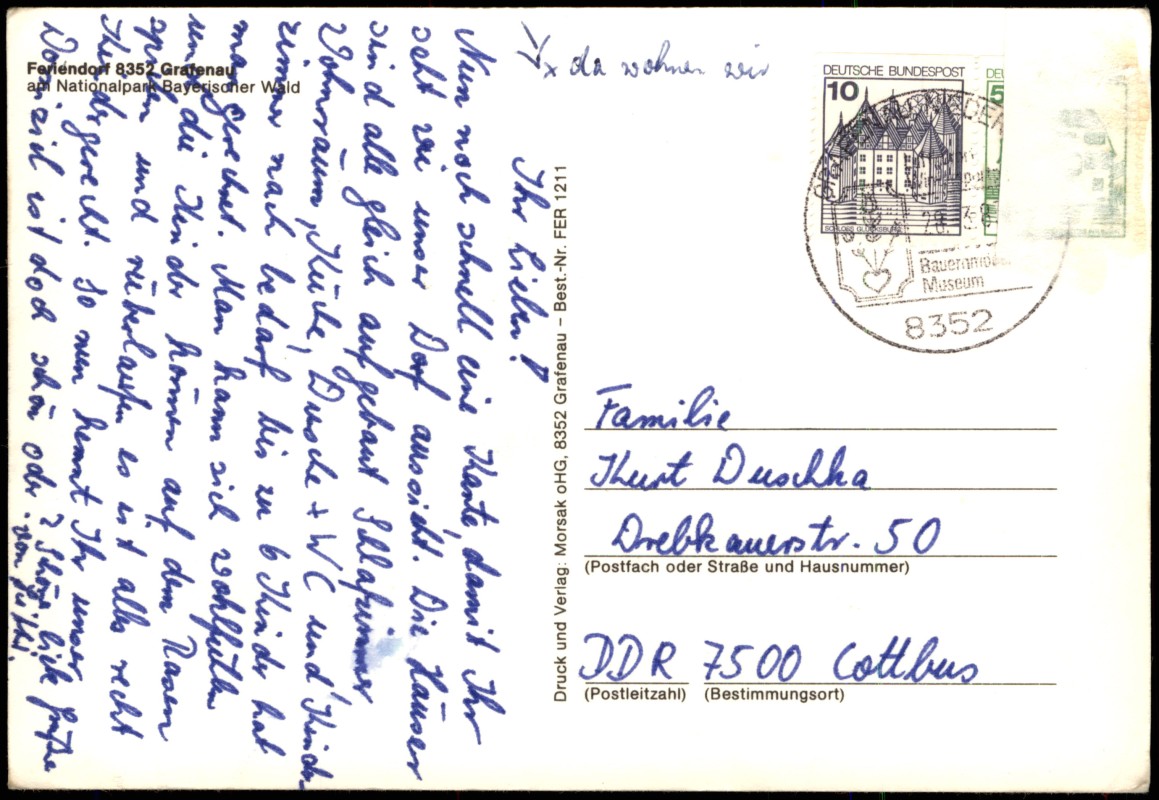 Feriendorf 8352 Grafenau
am Nationalpark Bayerischer Wald
x da wohnen wir
Ihr Lieben!
Nun noch schnell eine Karte, damit Ihr
seht wie unser Dorf aussieht. Die Häuser
sind alle gleich aufgebaut Schlafzimmer
Wohnraum, Küche, Dusche + WC und Kinder
zimmer nach bedarf bis zu 6 Kinder hat
man gerechnet. Man kann sich wohlfühlen
und die Kinder können auf dem Rasen
spielen und rüberlaufen es ist alles recht
Kindgerecht. So nun kennt Ihr unser
Domizil ist doch schön oder? Schöne liebe Grüße
von
Druck und Verlag: Morsak oHG, 8352 Grafenau – Best.-Nr. FER 1211
DEUTSCHE BUNDESPOST
10
SCHLOSS GLÜCKSBURG
DEU
5
Museum
8352
Familie
Kurt Duschka
Drebkauerstr. 50
(Postfach oder Straße und Hausnummer)
DDR 7500 Cottbus
(Postleitzahl) (Bestimmungsort)